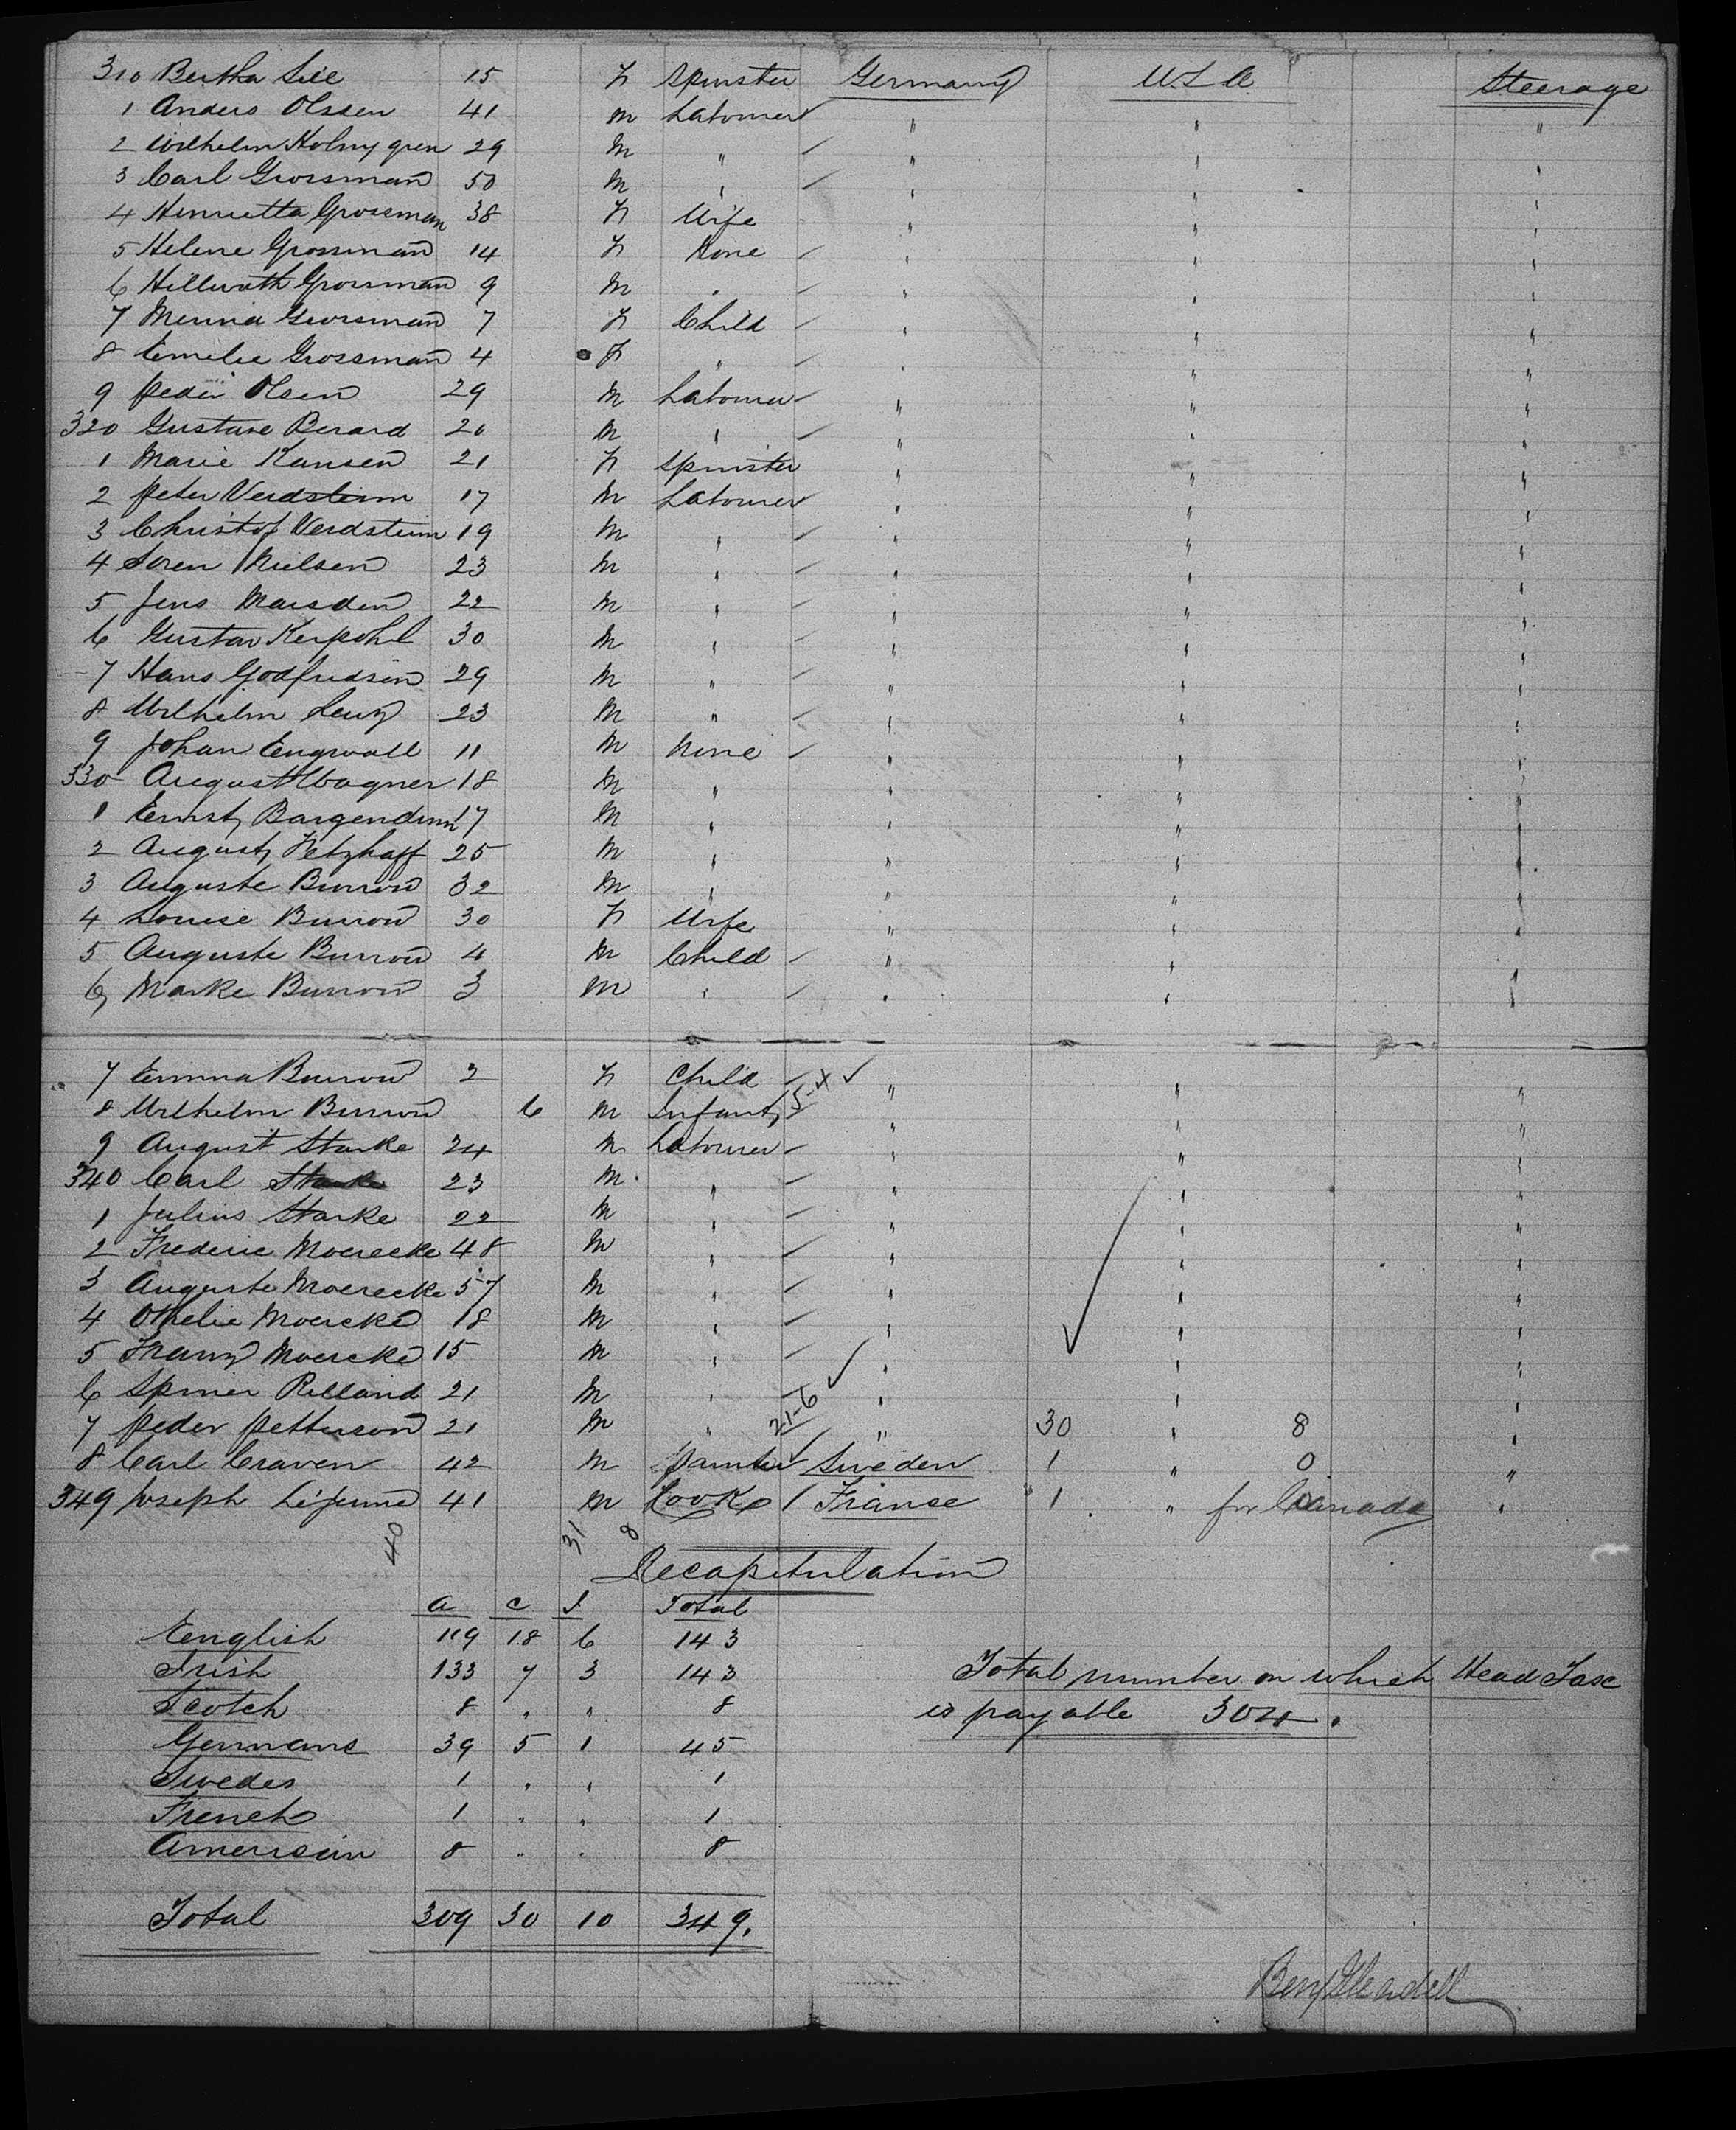 310 Bertha Sëe 15 F Spinster Germany U.S.A. Steerage
1 Anders Olssen 41 M Labourer " " "
2 Wilhelm Holmgren 29 M " " " "
3 Carl Grossman 50 M " " " "
4 Henrietta Grossman 38 F Wife " " "
5 Helene Grossman 14 F None " " "
6 Hillwath Grossman 9 M " " " "
7 Menna Grossman 7 F Child " " "
8 Emelie Grossman 4 F " " " "
9 Peder Olsen 29 M Labourer " " "
320 Gustave Berard 20 M " " " "
1 Marie Kansen 21 F Spinster " " "
2 Peter Verdsteim 17 M Labourer " " "
3 Christof Verdsteim 19 M " " " "
4 Soren Nielsen 23 M " " " "
5 Jens Marsden 22 M " " " "
6 Gustav Kerpohl 30 M " " " "
7 Hans Godfredsen 29 M " " " "
8 Wilhelm Lenz 23 M " " " "
9 Johan Engwall 11 M None " " "
330 August Wagner 18 M " " " "
1 Ernst 17 M " " " "
2 August 25 M " " " "
3 Auguste Burrow 32 M " " " "
4 Louise Burrow 30 F Wife " " "
5 Auguste Burrow 4 M Child " " "
6 Marke Burrow 3 M " " " "
7 Emma Burrow 2 F Child " " "
8 Wilhelm Burrow 6 M Infant 5-4 " " "
9 August Starke 24 M Labourer " " "
340 Carl Starke 23 M " " " "
1 Julius Starke 22 M " " " "
2 Frederic Moerecke 48 M " " " "
3 Auguste Moerecke 57 M " " " "
4 Othelie Moercke 18 M " " " "
5 Franz Moercke 15 M " " " "
6 Relland 21 M " " " "
7 Peder Petterson 21 M " 21-6 " 30 " 8 "
8 Carl Craven 42 M Painter Sweden 1 " 0 "
349 Joseph Lejeune 41 M Cook France 1 " for Canada "
40 31 8
Recapitulation
A C I Total
English 119 18 6 143
Irish 133 7 3 143
Scotch 8 " " 8
Germans 39 5 1 45
Swedes 1 " " 1
French 1 " " 1
American 8 " " 8
Total 309 30 10 349.
Total number on which Head Tax
is payable 304.
Benj Gleadell